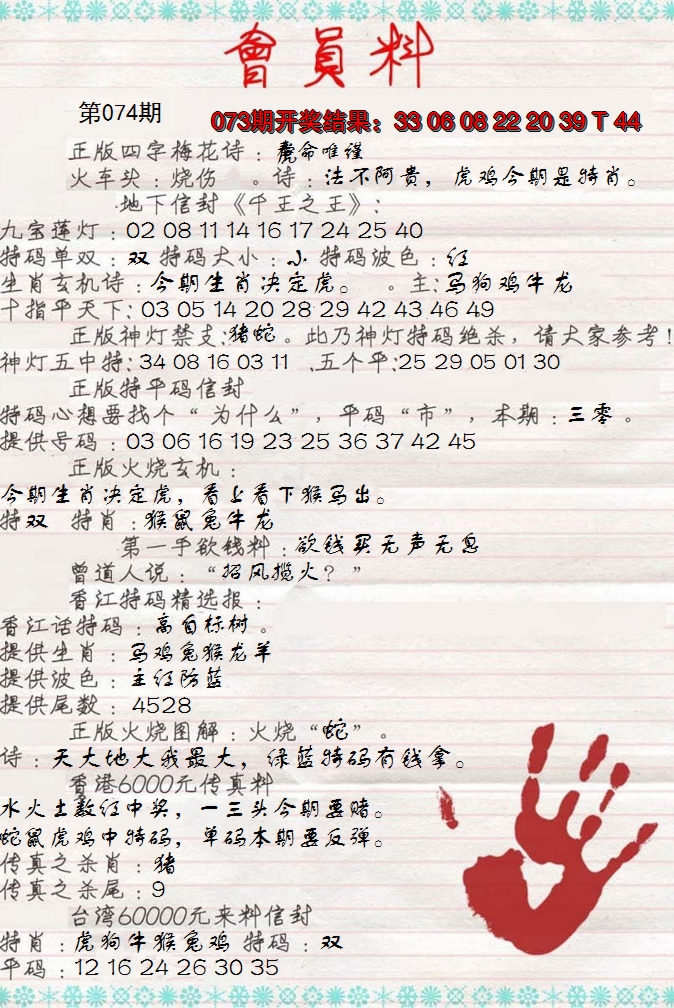 會員料
第074期
073期开奖结果：33 06 08 22 20 39 T 44
正版四字梅花诗：唯命唯谨
火车头：烧伤 。诗：法不阿贵，虎鸡今期是特肖。
地下信封《千王之王》：
九宝莲灯：02 08 11 14 16 17 24 25 40
特码单双：双 特码大小：小 特码波色：红
生肖玄机诗：今期生肖决定虎。 。主：马狗鸡牛龙
十指平天下：03 05 14 20 28 29 42 43 46 49
正版神灯禁支：猪蛇。此乃神灯特码绝杀，请大家参考！
神灯五中特：34 08 16 03 11 .五个平：25 29 05 01 30
正版特平码信封
特码心想要找个“为什么”，平码“市”，本期：三零。
提供号码：03 06 16 19 23 25 36 37 42 45
正版火烧玄机：
今期生肖决定虎，看上看下猴马出。
特双 特肖：猴鼠兔牛龙
第一手欲钱料：欲钱买无声无息
曾道人说：“招风揽火？”
香江特码精选报：
香江话特码：高自标树。
提供生肖：马鸡兔猴龙羊
提供波色：主红防蓝
提供尾数：4528
正版火烧图解：火烧“蛇”。
诗：天大地大我最大，绿蓝特码有钱拿。
香港6000元传真料
水火土数红中奖，一三头今期要赌。
蛇鼠虎鸡中特码，单码本期要反弹。
传真之杀肖：猪
传真之杀尾：9
台湾60000元来料信封
特肖：虎狗牛猴兔鸡 特码：双
平码：12 16 24 26 30 35